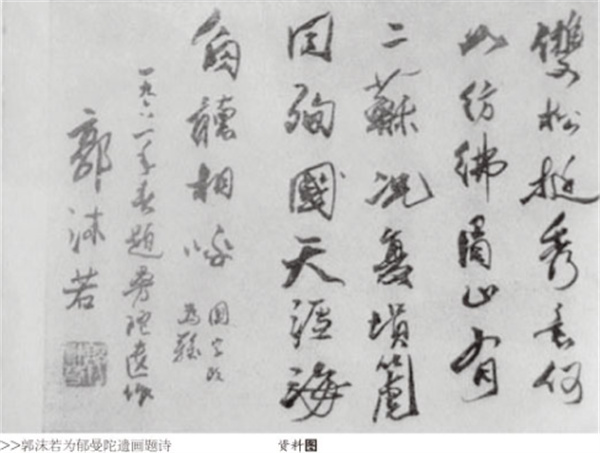 雙松挺秀意何
如仿佛眉山有
二蘇況復塤篪
同殉國天涯海
角聽相呼
國字改
為難
一九六一年春題曼陀遺作
郭沫若
>>郭沫若为郁曼陀遗画题诗
资料图